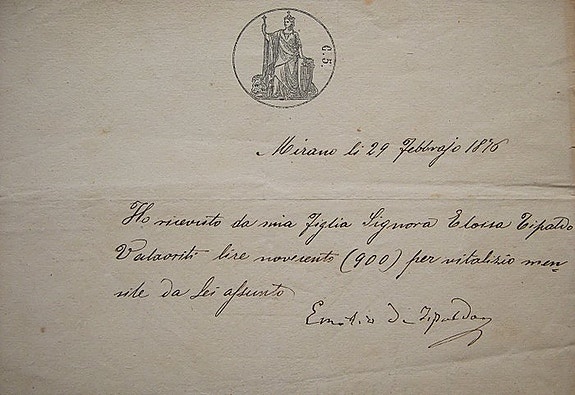 C. 5.
Mirano li 29 Febbrajo 1876
Ho ricevuto da mia Figlia Signora Eloisa Tipaldo
Valaoriti lire novecento (900) per vitalizio men=
sile da Lei assunto
Emilio De Tipaldo